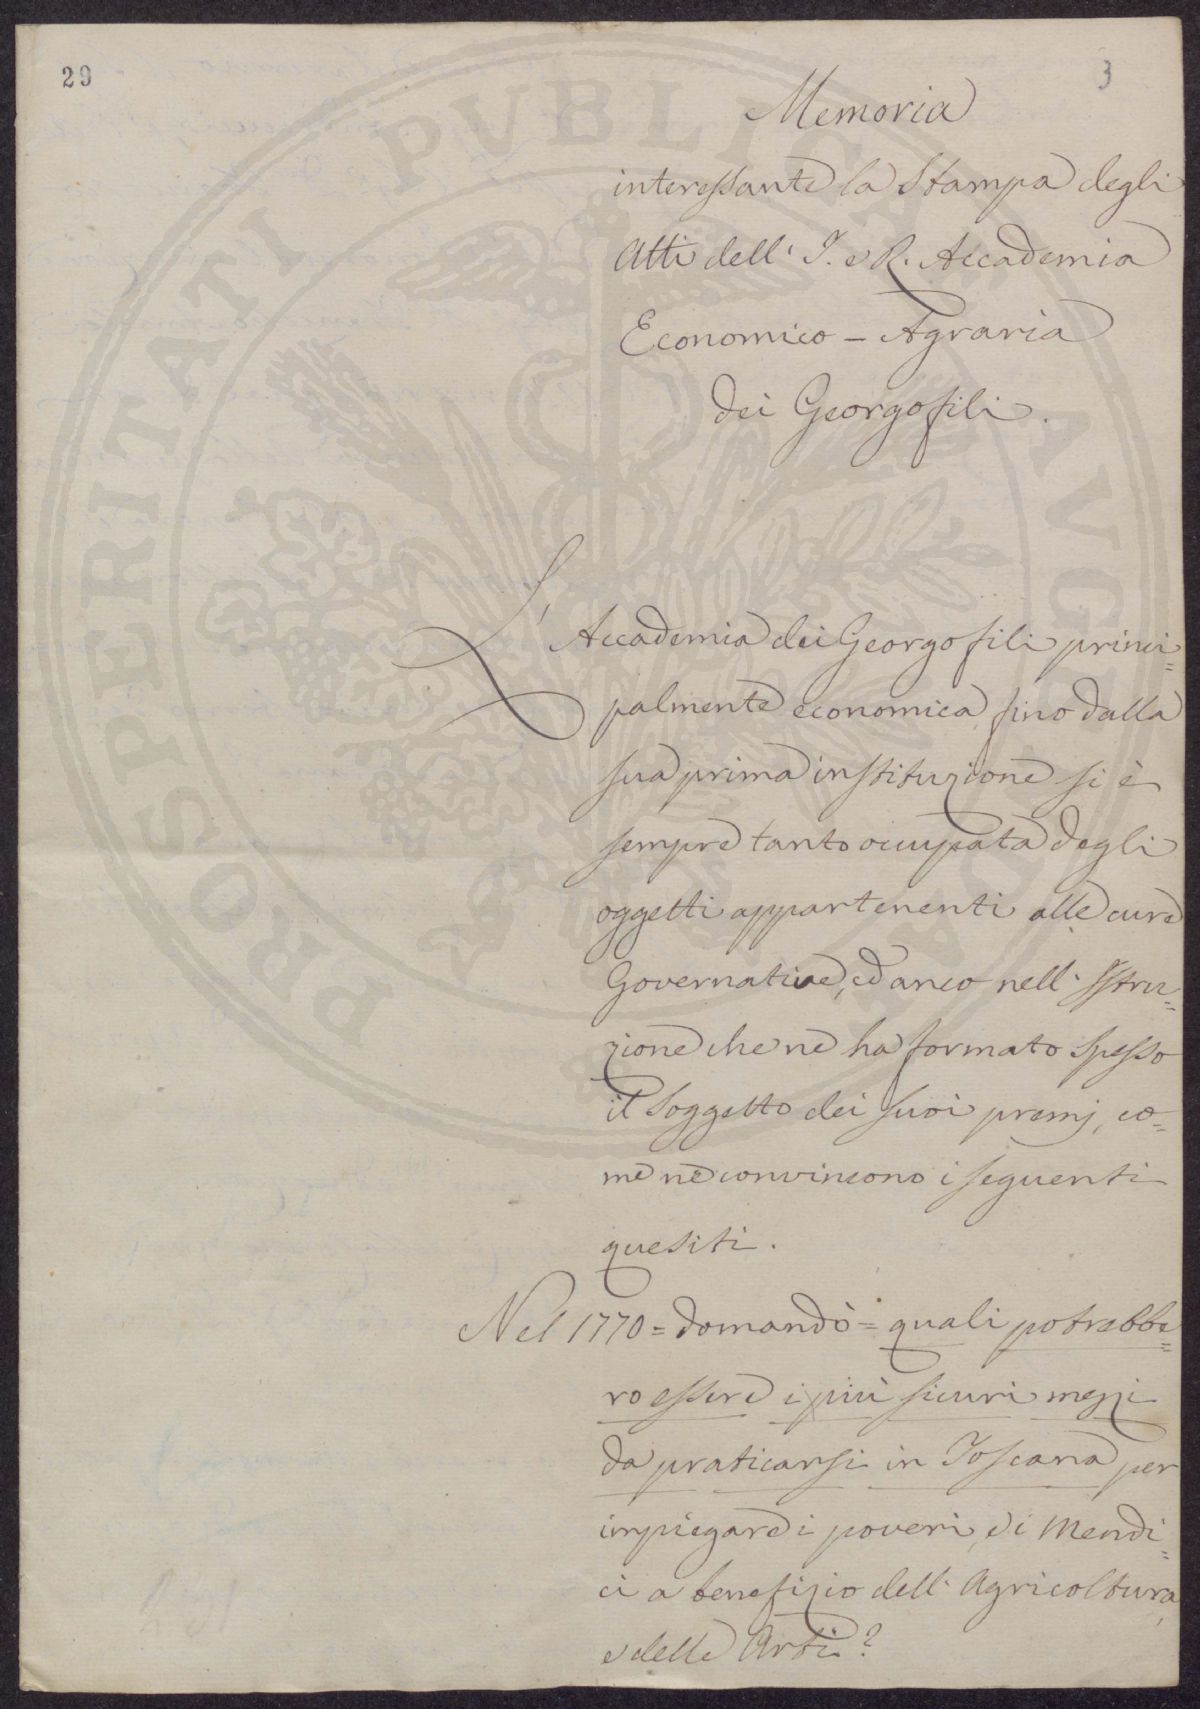 29
3
Memoria
interessante la Stampa degli
Atti dell' I. e R. Accademia
Economico - Agraria
dei Georgofili.
L'Accademia dei Georgofili princi=
palmente economica, fino dalla
sua prima instituzione si è
sempre tanto occupata degli
oggetti appartenenti alle cure
Governative, ed anco nell' Istru=
zione che ne ha formato spesso
il Soggetto dei suoi premj, co=
me ne convincono i seguenti
quesiti.
Nel 1770 = domandò = quali potrebbe=
ro essere i più sicuri mezzi
da praticarsi in Toscana per
impiegare i poveri, e i Mendi=
ci a benefizio dell' Agricoltura,
e delle Arti?
PROSPERITATI PVBLICAE AVGENDAE